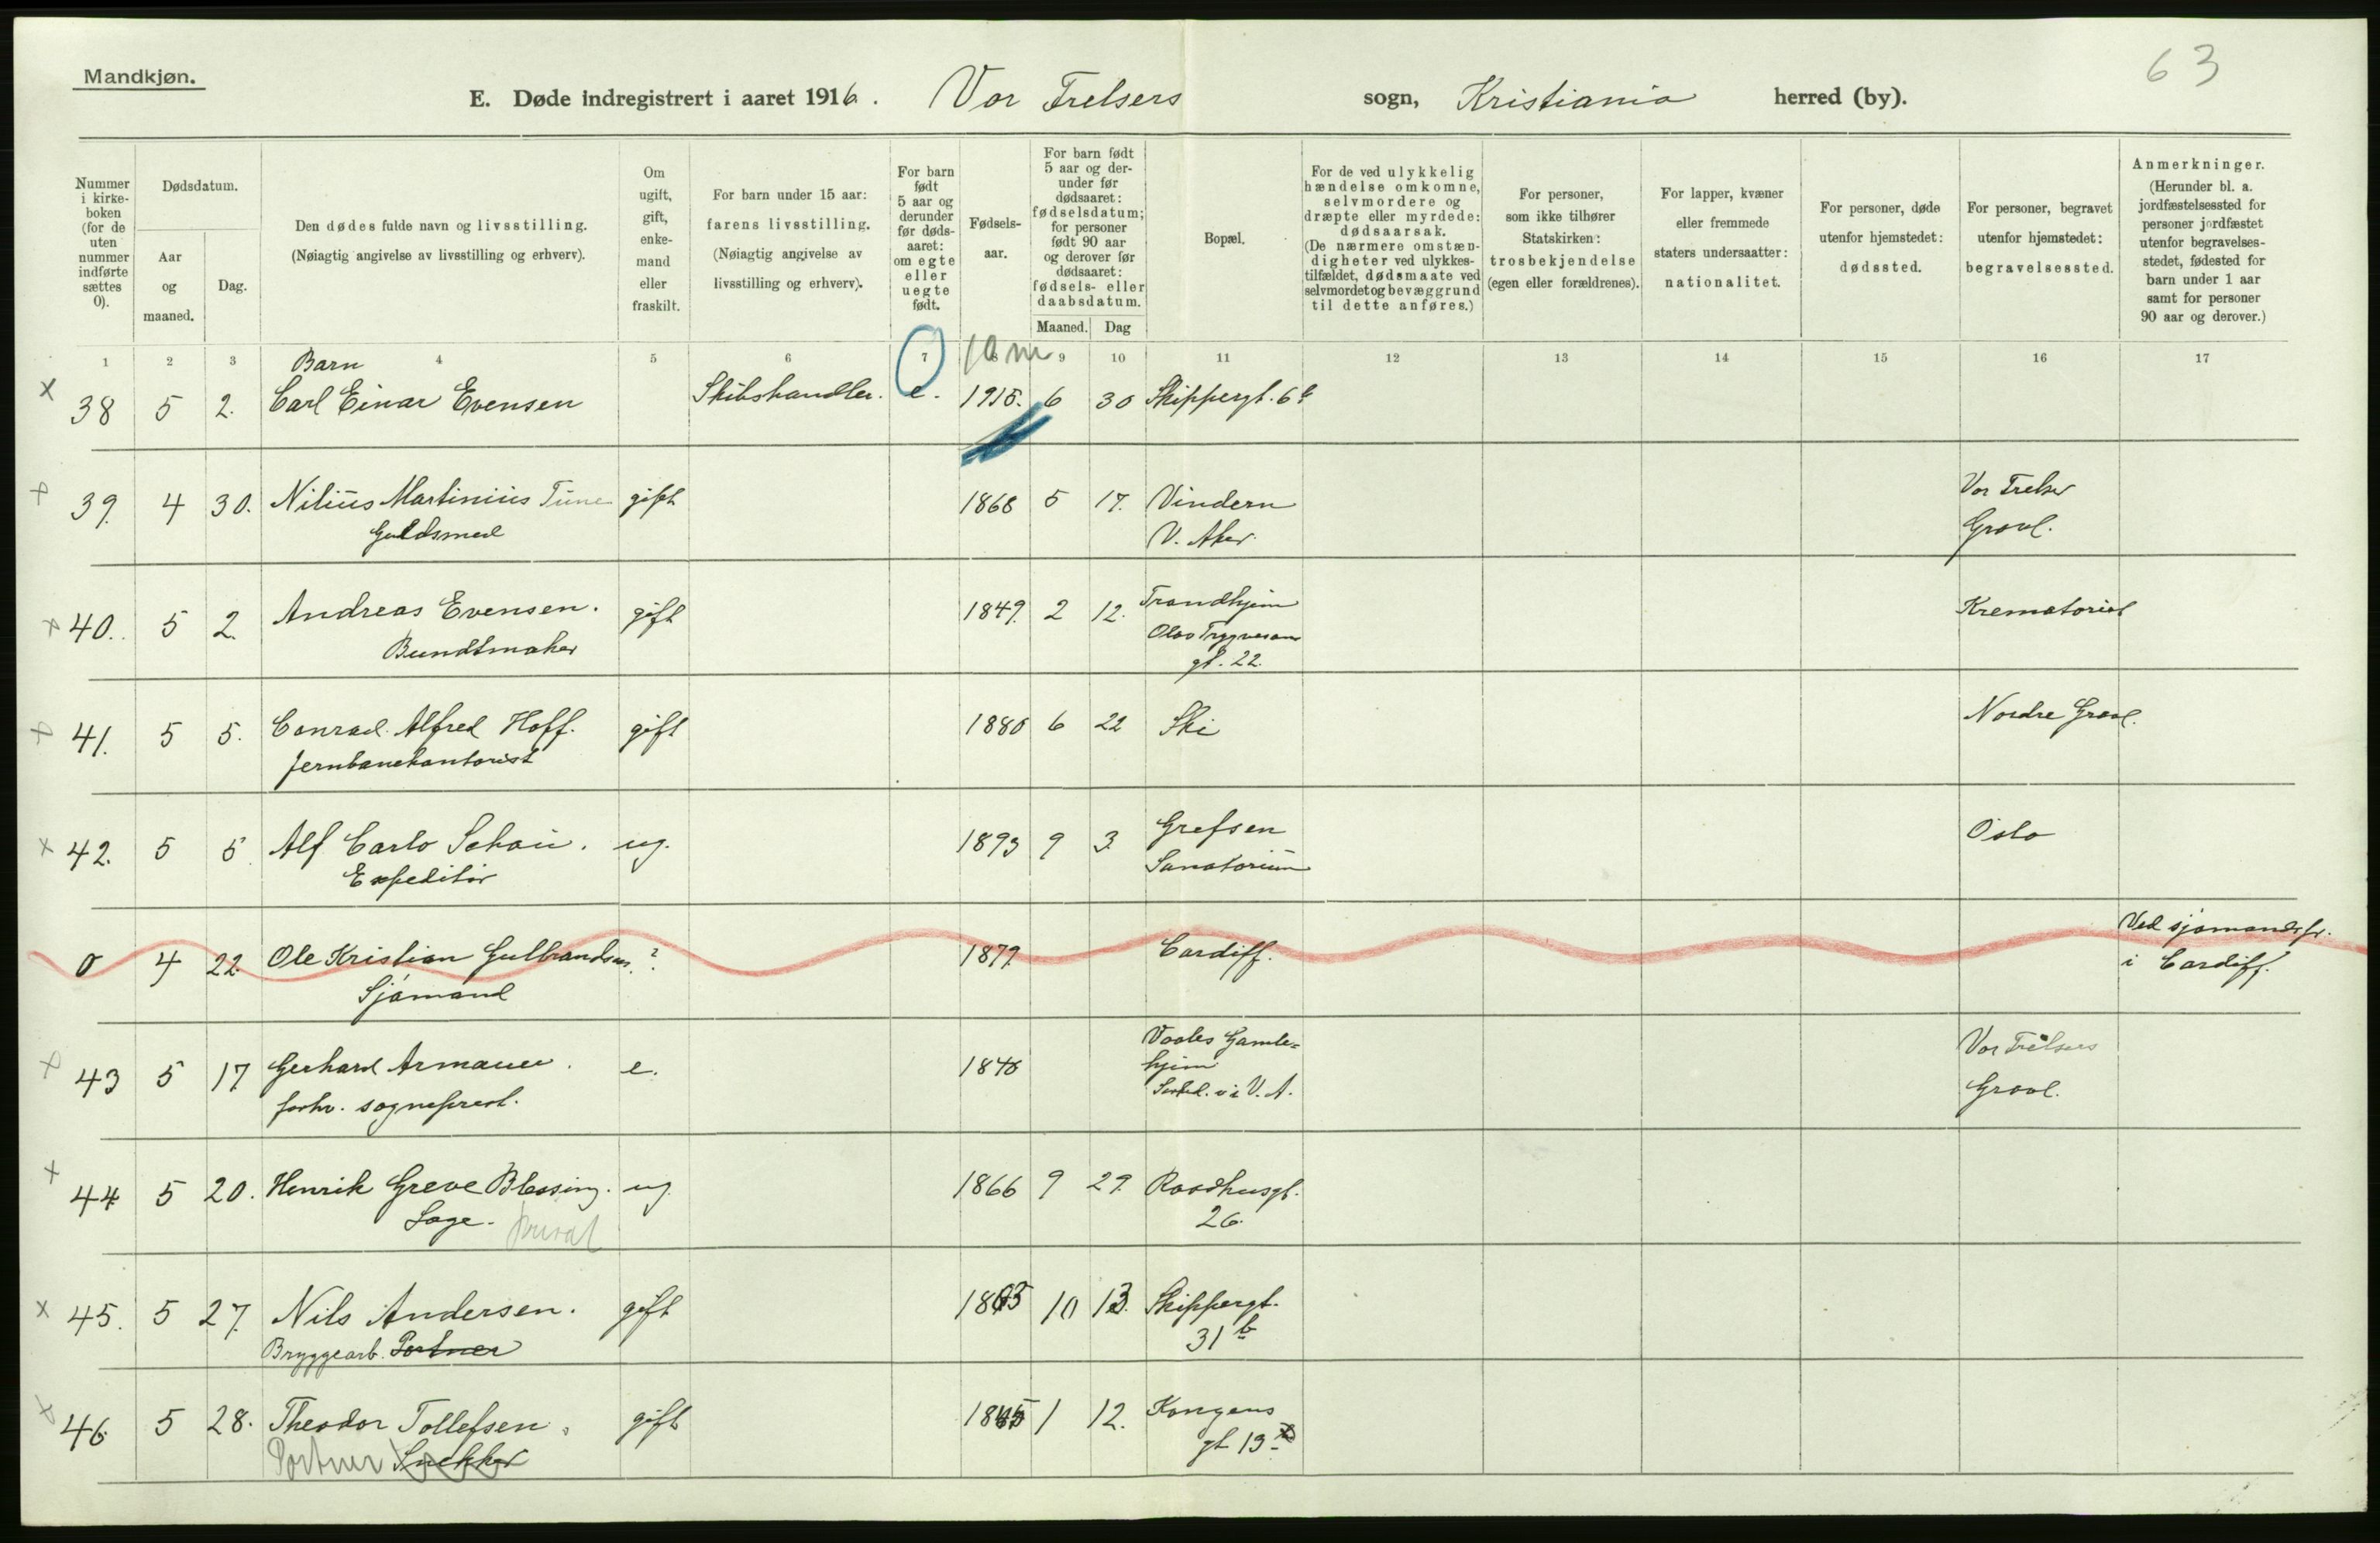 63
Mandkjøn.
E. Døde indregistrert i aaret 1916. Vor Frelsers sogn, Kristiania herred (by).
Nummer i kirke-boken (for de uten nummer indførte sættes 0).
Dødsdatum.
Aar og maaned.
Dag.
Den dødes fulde navn og livsstilling.
(Nøiagtig angivelse av livsstilling og erhverv).
Om ugift, gift, enke-mand eller fraskilt.
For barn under 15 aar: farens livsstilling.
(Nøiagtig angivelse av livsstilling og erhverv).
For barn født 5 aar og derunder før døds-aaret: om egte eller uegte født.
Fødsels-aar.
For barn født 5 aar og der-under før dødsaaret: fødselsdatum; for personer født 90 aar og derover før dødsaaret: fødsels- eller daabsdatum.
Maaned. Dag
Bopæl.
For de ved ulykkelig hændelse omkomne, selvmordere og dræpte eller myrdede: dødsaarsak.
(De nærmere omstæn-digheter ved ulykkes-tilfældet, dødsmaate ved selvmordet og bevæggrund til dette anføres.)
For personer, som ikke tilhører Statskirken: trosbekjendelse (egen eller forældrenes).
For lapper, kvæner eller fremmede staters undersaatter: nationalitet.
For personer, døde utenfor hjemstedet: dødssted.
For personer, begravet utenfor hjemstedet: begravelsessted.
Anmerkninger.
(Herunder bl. a. jordfæstelsessted for personer jordfæstet utenfor begravelses-stedet, fødested for barn under 1 aar samt for personer 90 aar og derover.)
1 2 3 4 5 6 7 8 9 10 11 12 13 14 15 16 17
Barn 10 m
x 38 5 2. Carl Einar Evensen Skibshandler. e. 1915. 6 30 Skippergt. 6 b
39. 4 30. Nilius Martinius Tune gift 1868 5 17. Vindern Vor Frelser
Guldsmed V. Aker. Gravl.
40. 5 2. Andreas Evensen. gift 1849. 2 12. Trondhjem Krematoriet
Bundtmaker Olav Trygvesons
gt. 22.
41. 5 5. Conrad Alfred Hoff. gift 1880 6 22 Ski Nordre Gravl.
Jernbanekontorist
x 42. 5 5. Alf Carlo Schau. ug. 1893 9 3. Grefsen Oslo
Expeditør Sanatorium
0 4 22. Ole Kristian Gulbrandsen. ? 1879. Cardiff. Ved sjømandspr.
Sjømand i Cardiff.
43 5 17 Gerhard Armauer. e. 1840 Gamle= Vor Frelsers
forhv. sogneprest. hjem Gravl.
i V. A.
44 5 20. Henrik Greve Blessing. ug. 1866 9 29. Raadhusgt.
Læge. privat 26.
x 45. 5 27. Nils Andersen. gift 1865 10 13. Skippergt.
Bryggearb. Portner 31 b
46. 5 28. Theodor Tollefsen. gift 1845 1 12. Kongens
Portner Snekker gt 13